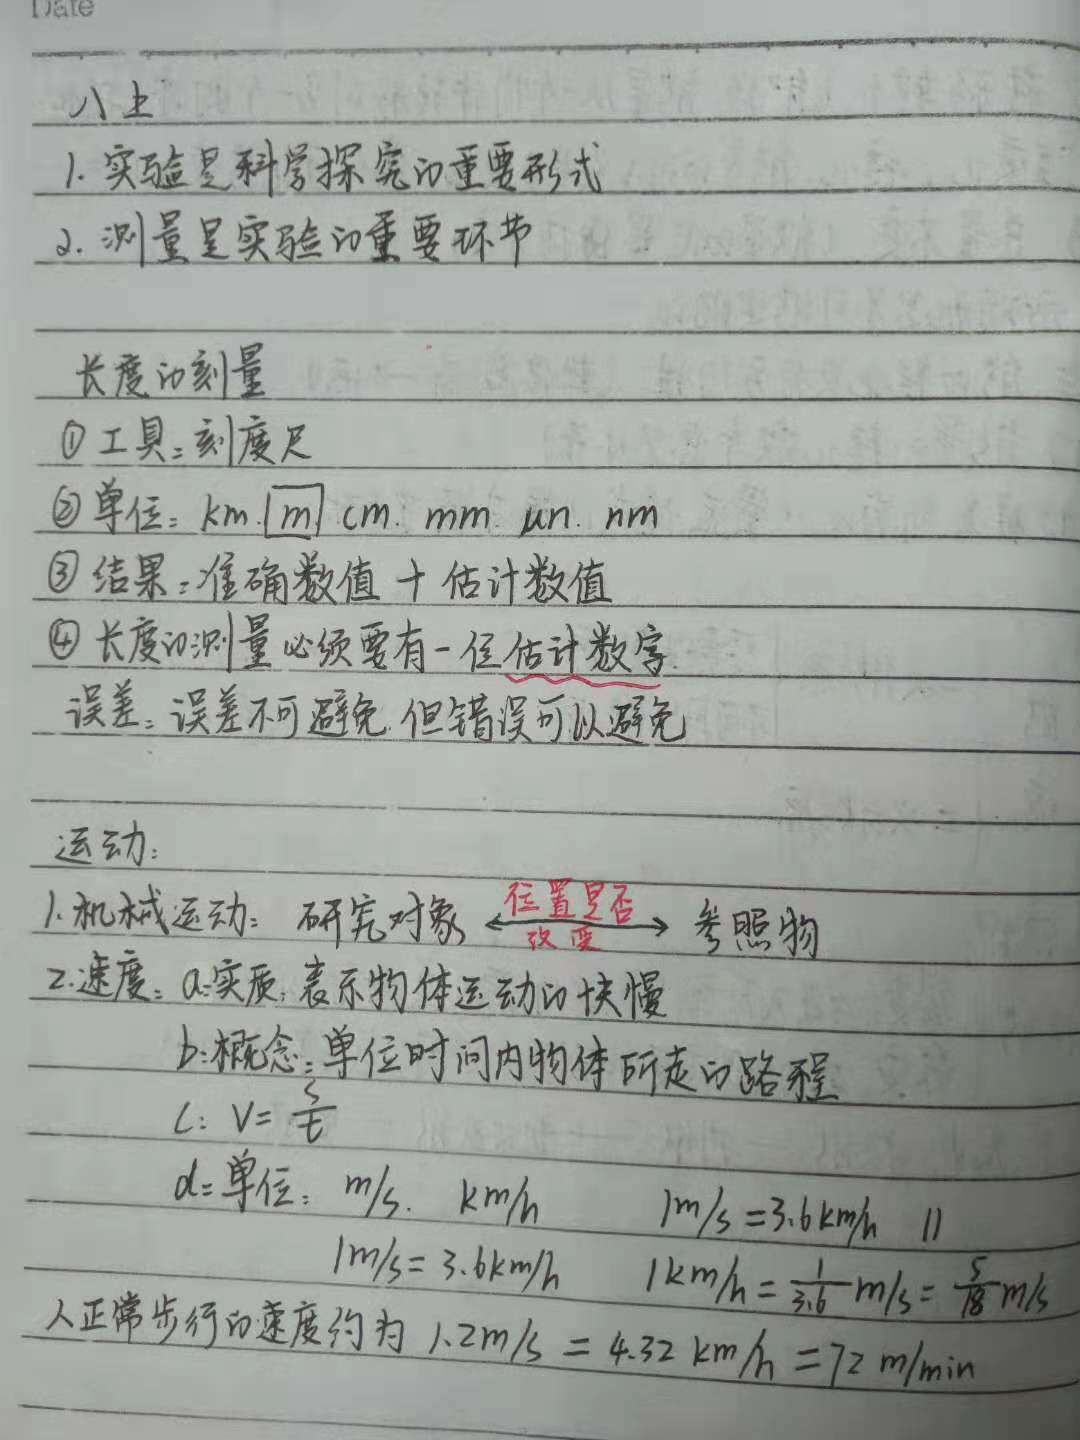 Date
八上
1. 实验是科学探究的重要形式
2. 测量是实验的重要环节
长度的刻量
① 工具：刻度尺
② 单位：km. m cm. mm. μn. nm
③ 结果：准确数值 + 估计数值
④ 长度的测量必须要有一位估计数字.
误差：误差不可避免. 但错误可以避免
运动：
1. 机械运动：研究对象 位置是否改变 参照物
2. 速度：a:实质：表示物体运动的快慢
b:概念：单位时间内物体所走的路程
C: V= s/t
d:单位：m/s. km/h 1m/s=3.6km/h
1m/s=3.6km/h 1km/h=1/3.6 m/s=5/18 m/s
人正常步行的速度约为 1.2m/s = 4.32 km/h = 72 m/min